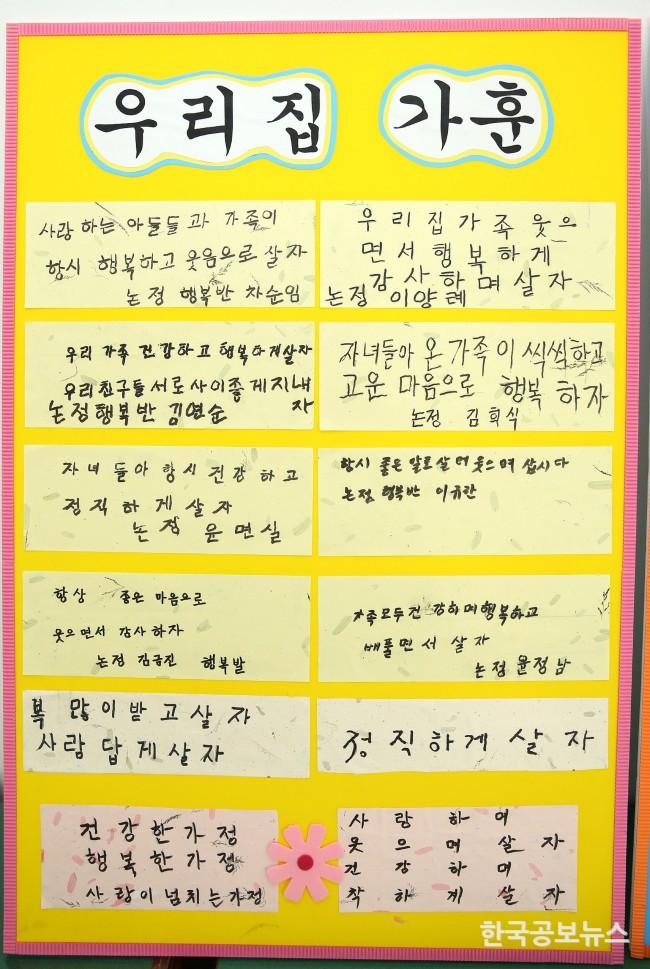 우리집 가훈
사랑하는 아들들과 가족이
항시 행복하고 웃음으로 살자
논정 행복반 차순임
우리집가족웃으
면서행복하게
감사하며살자
논정 이양례
우리 가족 건강하고 행복하게살자
우리친구들서로사이좋게지내
자
논정행복반 김연순
자녀들아 온 가족이 씩씩하고
고운 마음으로 행복 하자
논정 김희식
자녀들아 항시건강하고
정직하게살자
논정 윤면실
항시 좋은 말로살며웃으며 삽시다
논정 행복반 이규란
항상 좋은 마음으로
웃으면서 감사하자
논정 김금진 행복발
가족모두건강하며행복하고
베풀면서 살자
논정윤정남
복 많이받고살자
사람답게살자
정직하게 살자
건강한가정
행복한가정
사랑이넘치는가정
사랑하며
웃으며살자
건강하며
착하게살자
한국공보뉴스